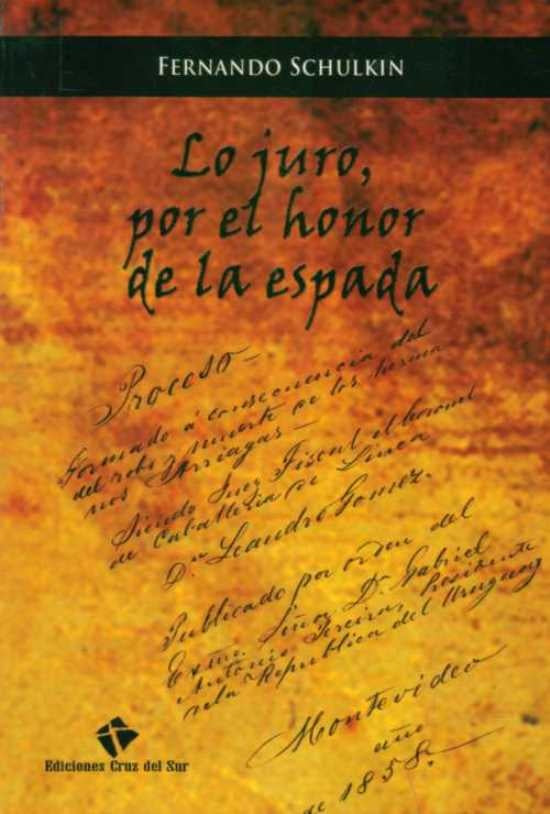 FERNANDO SCHULKIN
Lo juro,
por el honor
de la espada
Proceso—
Formado á consecuencia del
del robo y muerte de los herma
nos Arriagas—
Siendo Juez Fiscal el Coronel
de Caballeria de Linea
Dn. Leandro Gomez.
Publicado por orden del
Exmo. Señor Dn. Gabriel
Antonio Pereira, Presidente
de la Republica del Uruguay
Montevideo
año
de 1858.
Ediciones Cruz del Sur